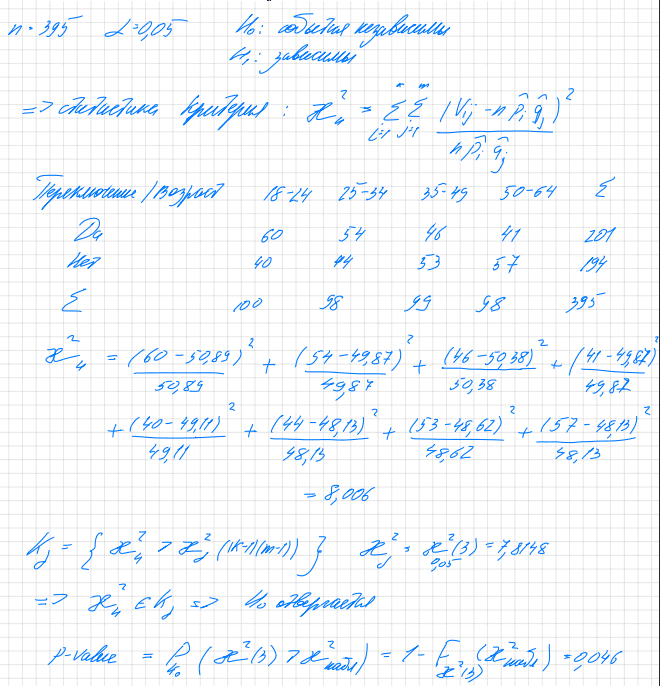 n = 395 α = 0,05 H₀: события независимы
H₁: зависимы
=> статистика критерия: χ²ₙ = Σⁿᵢ₌₁ Σᵐⱼ₌₁ (Vᵢⱼ - n p̂ᵢ q̂ⱼ)² / n p̂ᵢ q̂ⱼ
Переключение / Возраст 18-24 25-34 35-49 50-64 Σ
Да 60 54 46 41 201
Нет 40 44 53 57 194
Σ 100 98 99 98 395
χ²ₙ = (60 - 50,89)² / 50,89 + (54 - 49,87)² / 49,87 + (46 - 50,38)² / 50,38 + (41 - 49,87)² / 49,87
+ (40 - 49,11)² / 49,11 + (44 - 48,13)² / 48,13 + (53 - 48,62)² / 48,62 + (57 - 48,13)² / 48,13
= 8,006
K_α = { χ²ₙ > χ²_α ((K-1)(m-1)) } χ²_α = χ²₀,₀₅(3) = 7,8148
=> χ²ₙ ∈ K_α => H₀ отвергается
p-value = P_H₀ (χ²(3) > χ²набл) = 1 - F_χ²(3) (χ²набл) = 0,046